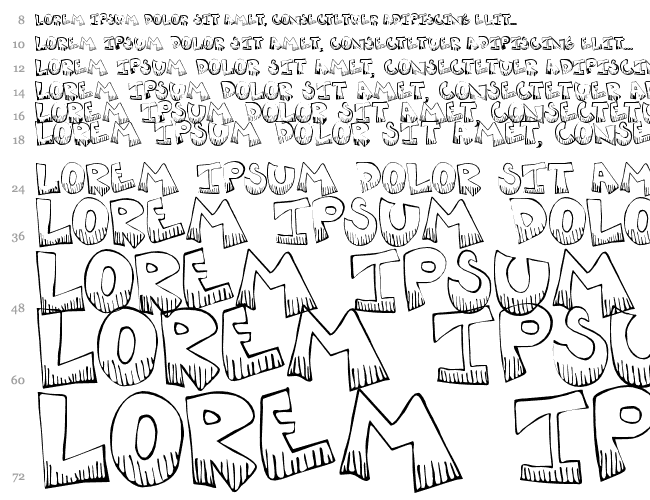 8 LOREM IPSUM DOLOR SIT AMET, CONSECTETUER ADIPISCING ELIT...
10 LOREM IPSUM DOLOR SIT AMET, CONSECTETUER ADIPISCING ELIT...
12 LOREM IPSUM DOLOR SIT AMET, CONSECTETUER ADIPISCIN
14 LOREM IPSUM DOLOR SIT AMET, CONSECTETUER AP
16 LOREM IPSUM DOLOR SIT AMET, CONSECTETU
18 LOREM IPSUM DOLOR SIT AMET, CONSE
24 LOREM IPSUM DOLOR SIT AM
36 LOREM IPSUM DOLO
48 LOREM IPSUM
60 LOREM IPSU
72 LOREM IP